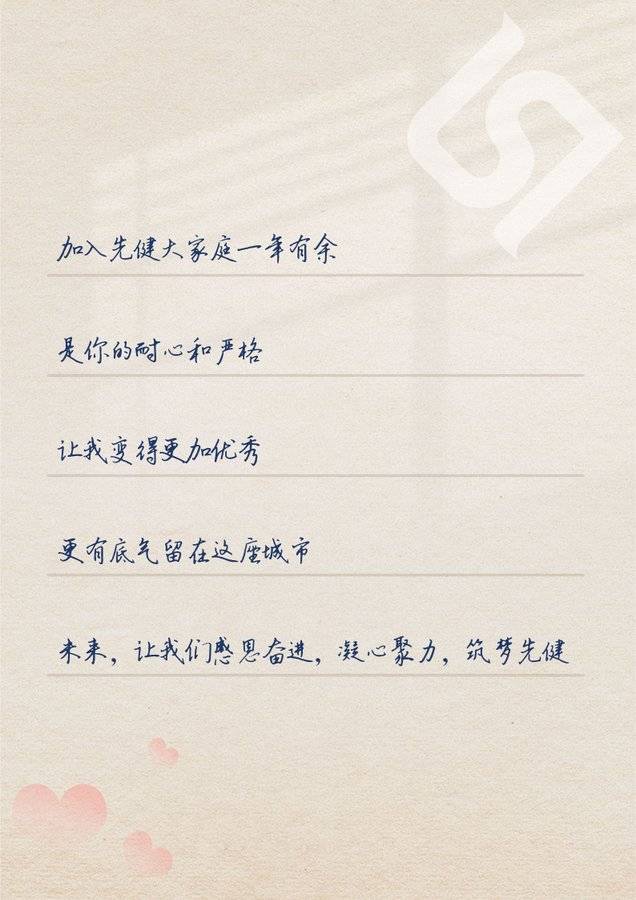 加入先健大家庭一年有余
是你的耐心和严格
让我变得更加优秀
更有底气留在这座城市
未来，让我们感恩奋进，凝心聚力，筑梦先健